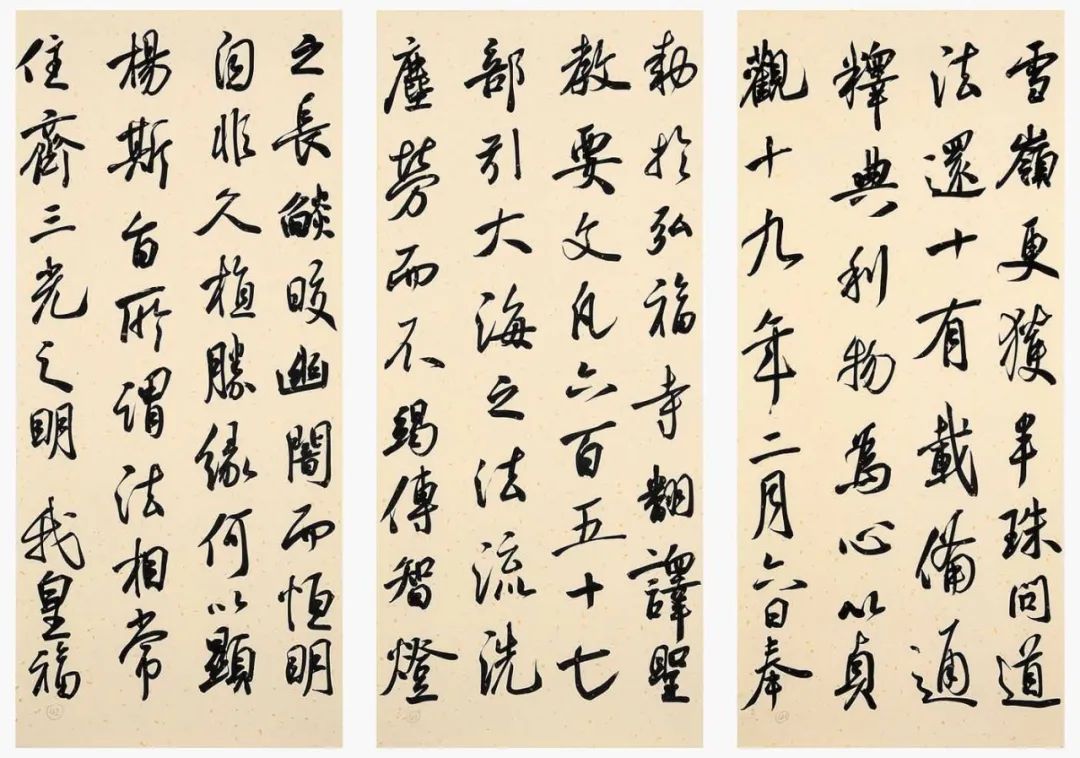 雪嶺更獲半珠問道
法還十有載備通
釋典利物爲心以貞
觀十九年二月六日奉
勅於弘福寺翻譯聖
教要文凡六百五十七
部引大海之法流洗
塵勞而不竭傳智燈
之長燄晈幽闇而恒明
自非久植勝緣何以顯
楊斯旨所謂法相常
住齊三光之明我皇福